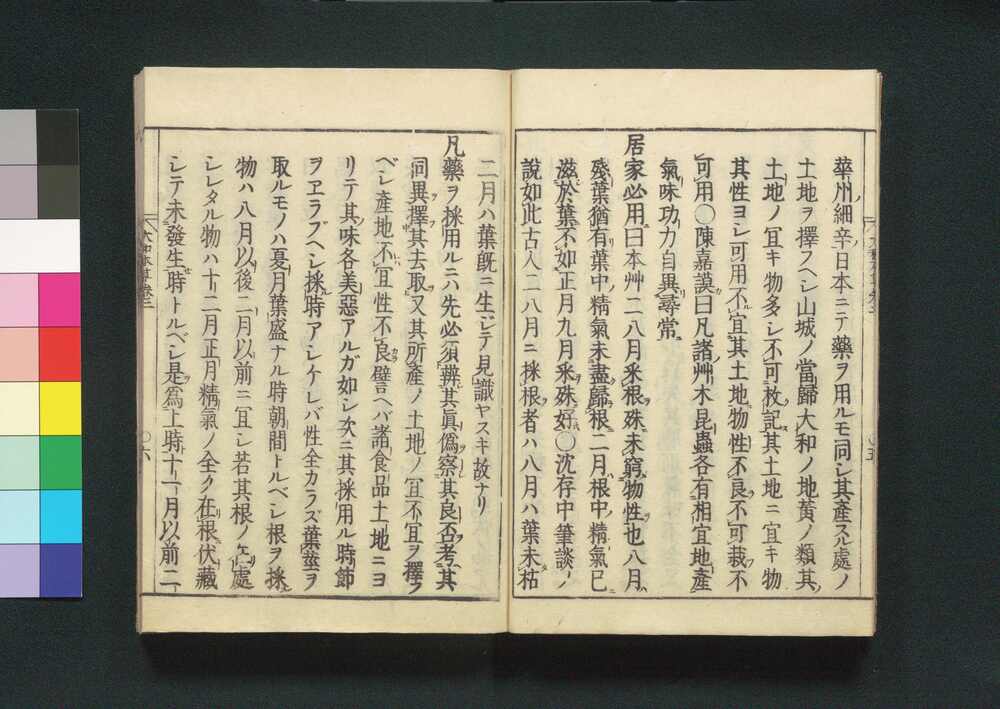 華州細辛日本ニテ藥ヲ用ルモ同シ其產スル處ノ
土地ヲ擇フヘシ山城ノ當歸大和ノ地黃ノ類其
土地ノ宜キ物多シ不可枚記其土地ニ宜キ物
其性ヨシ可用不宜其土地物性不良不可栽不
可用○陳嘉謨曰凡諸艸木昆蟲各有相宜地產
氣味功力自異尋常
居家必用曰本艸二八月釆根殊未窮物性也八月
殘葉猶有葉中精氣未盡歸根二月根中精氣已
滋於葉不如正月九月釆殊好○沈存中筆談ノ
說如此古人二八月ニ採根者ハ八月ハ葉未枯
○五
二月ハ葉旣ニ生シテ見識ヤスキ故ナリ
凡藥ヲ採用ルニハ先必須辨其眞僞察其良否考其
同異擇其去取又其所產ノ土地ノ宜不宜ヲ擇フ
ベシ產地不宜性不良譬ヘバ諸食品土地ニヨ
リテ其味各美惡アルガ如シ次ニ其採用ル時節
ヲヱラブヘシ採時アシケレバ性全カラズ葉莖ヲ
取ルモノハ夏月葉盛ナル時朝間トルベシ根ヲ採
物ハ八月以後二月以前ニ宜シ若其根ノ在處
シレタル物ハ十二月正月精氣ノ全ク在根伏藏
シテ未發生時トルベシ是爲上時十一月以前二
大和本草卷三
○六